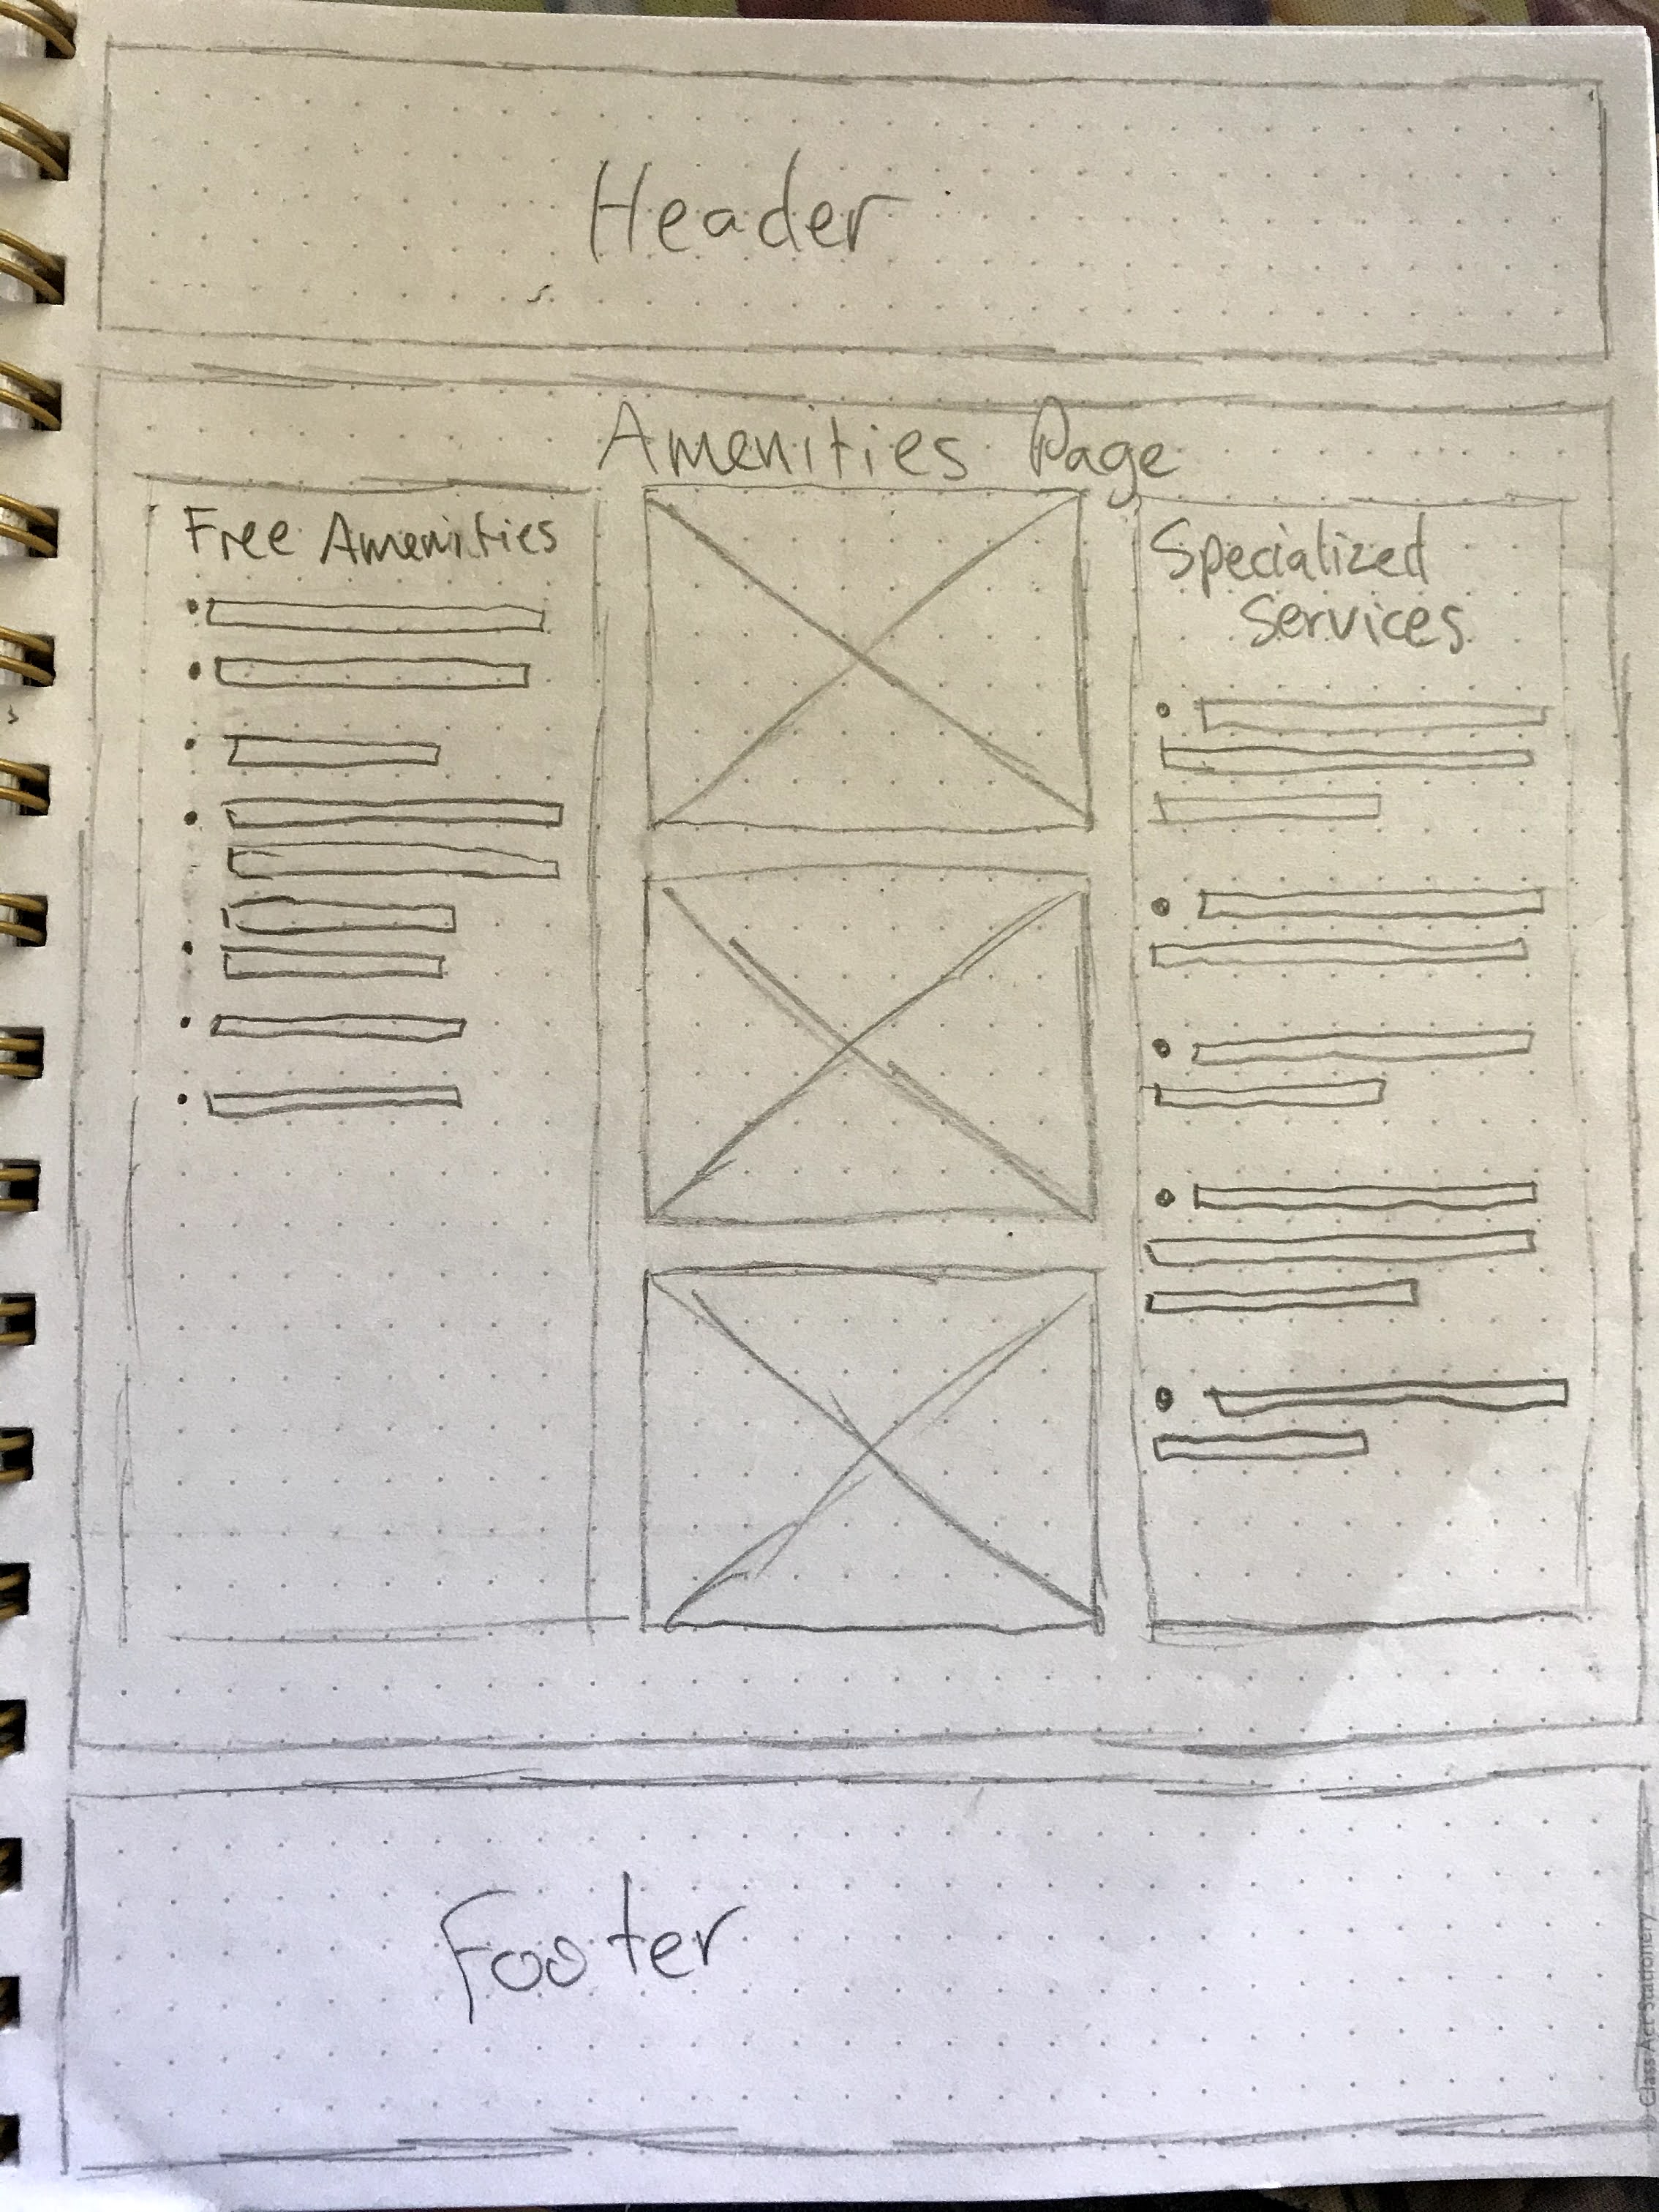 Header
Amenities Page
Free Amenities
Specialized
Services
Footer
© Class Act Stationery